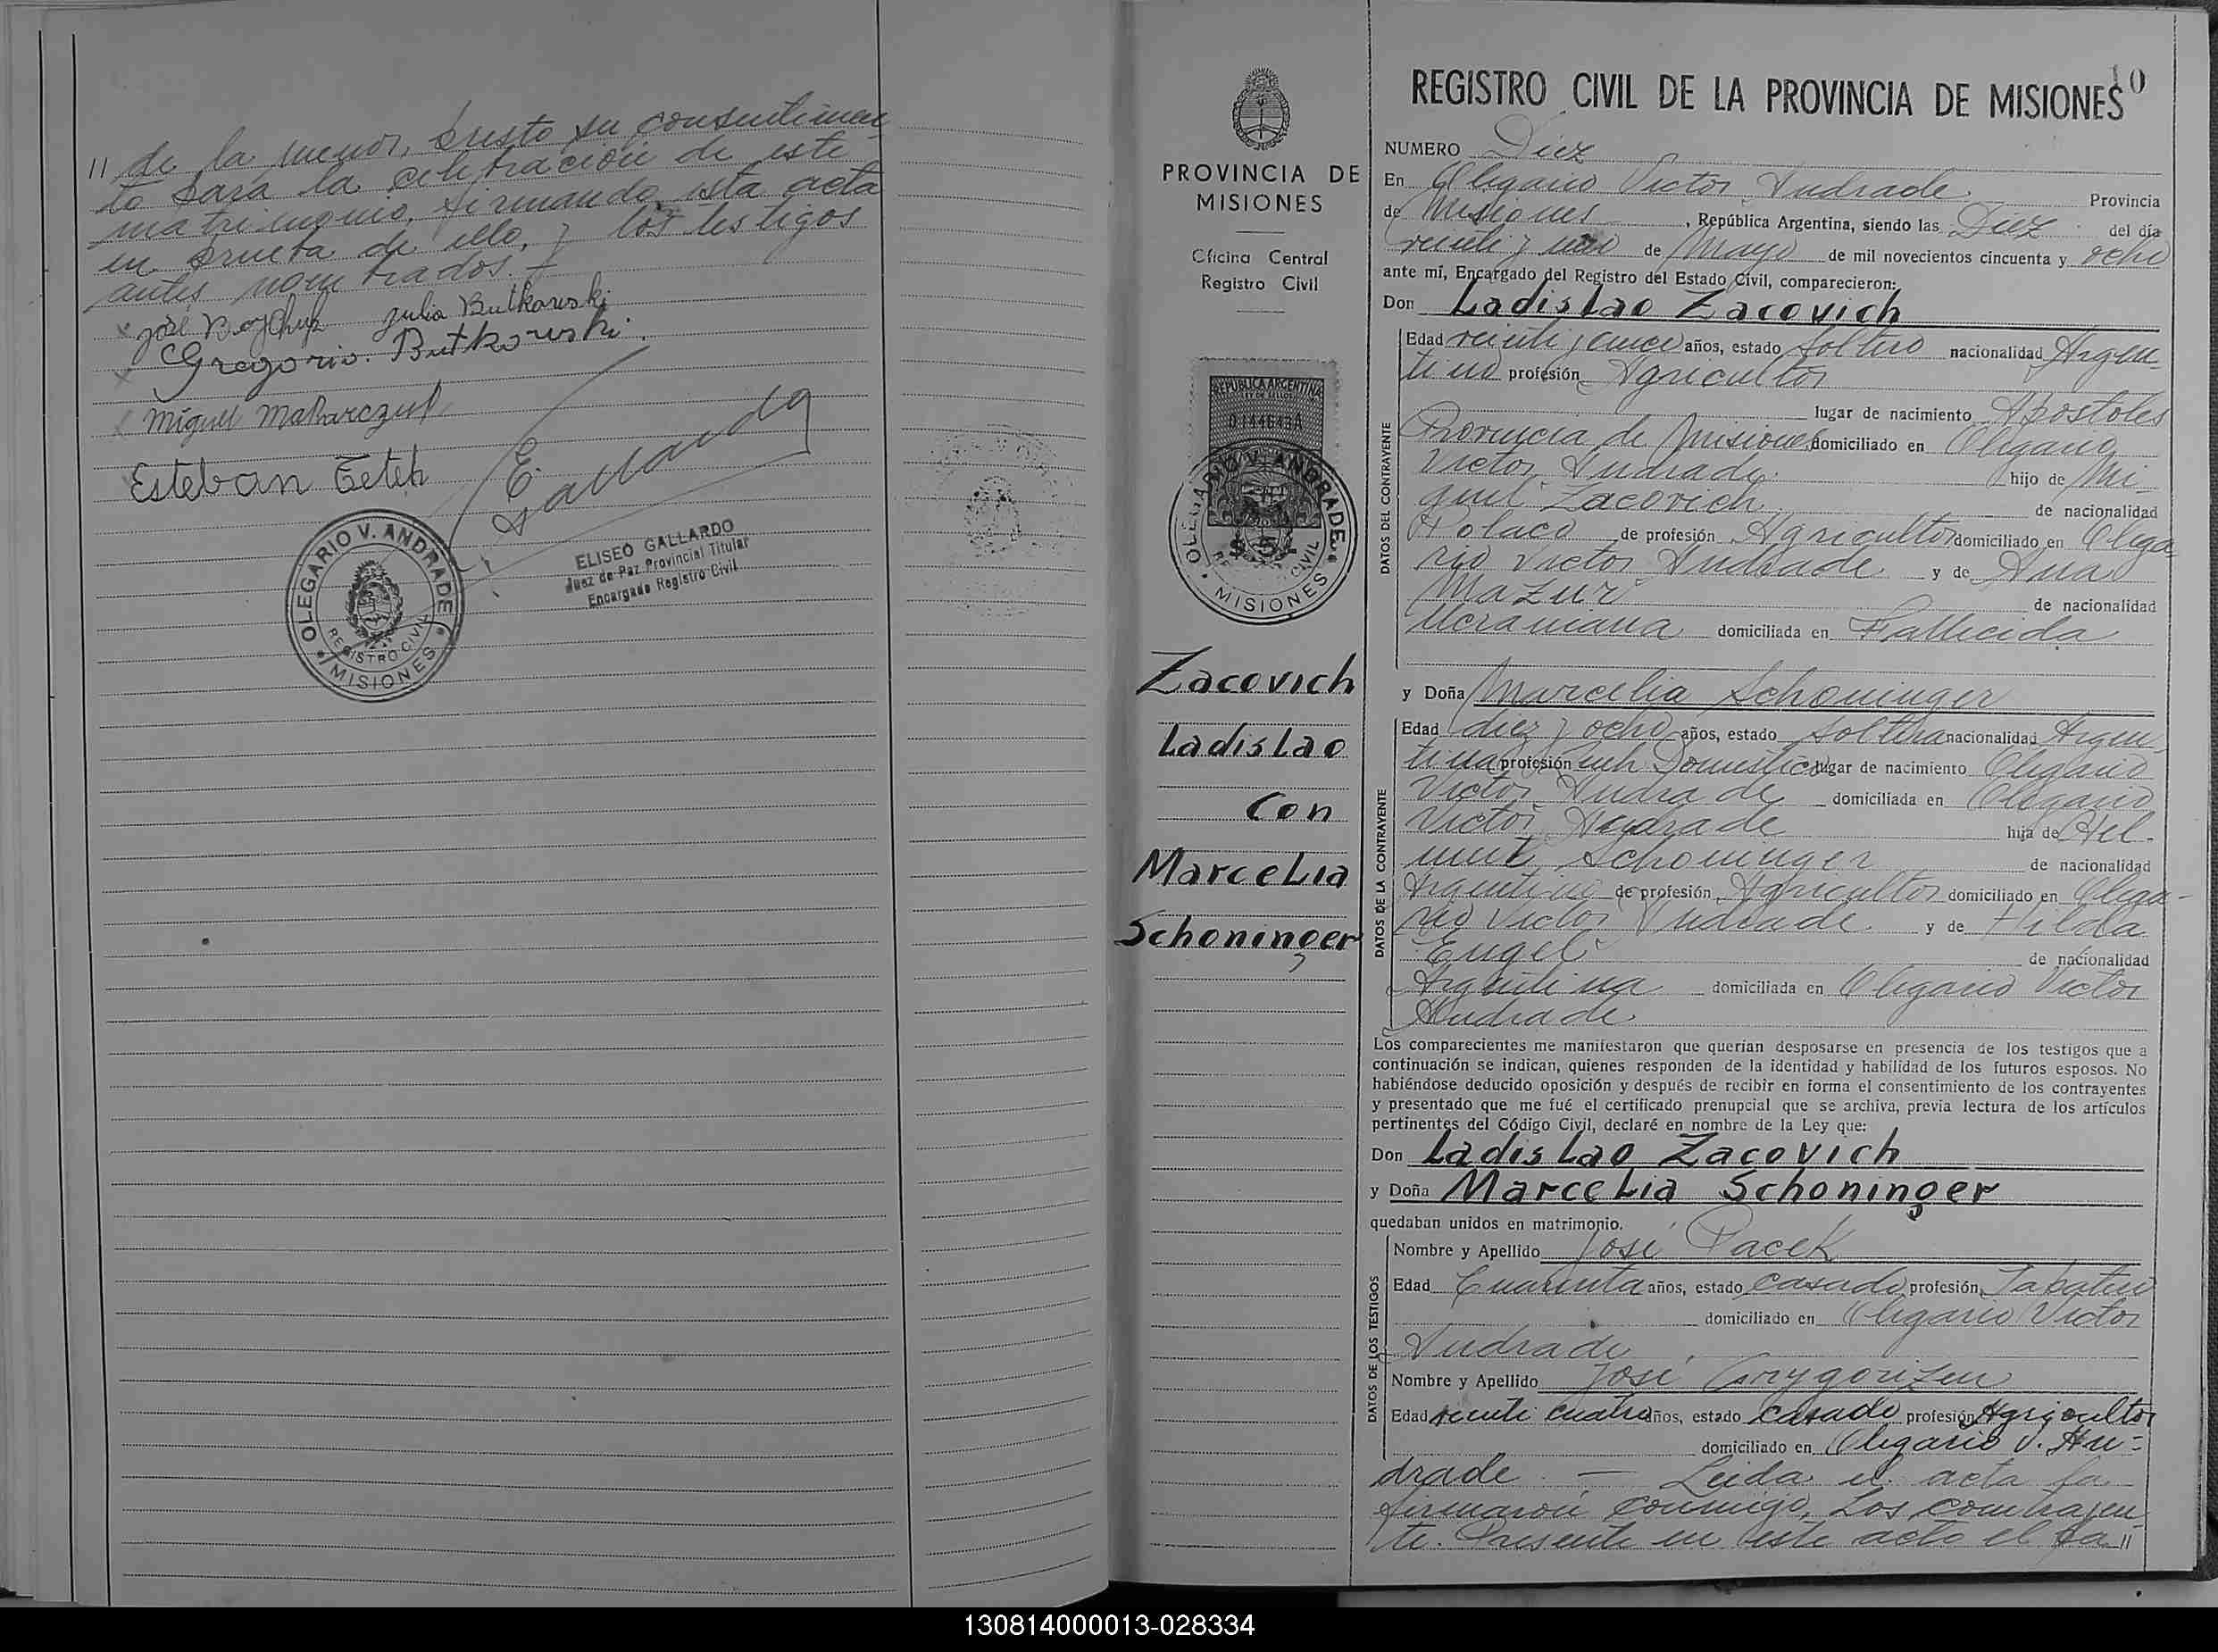 // de la menor, presto su consentimien
to para la celebración de este
matrimonio, firmando esta acta
en prueba de ello, y los testigos
antes nombrados.-
Julia Butkowski
Gregorio. Butkowski.
Miguel Makarczuk
Esteban Tetek
E. Gallardo
ELISEO GALLARDO
Juez de Paz Provincial Titular
Encargado Registro Civil
OLEGARIO V. ANDRADE
REGISTRO CIVIL
MISIONES
PROVINCIA DE
MISIONES
Oficina Central
Registro Civil
REPUBLICA ARGENTINA
LEY DE SELLOS
OLEGARIO V. ANDRADE
REGISTRO CIVIL
MISIONES
Zacovich
Ladislao
Con
Marcelia
Schoninger
10
REGISTRO CIVIL DE LA PROVINCIA DE MISIONES
NUMERO Diez
En Olegario Victor Andrade Provincia
de Misiones, República Argentina, siendo las Diez del día
veinti y uno de Mayo de mil novecientos cincuenta y ocho
ante mí, Encargado del Registro del Estado Civil, comparecieron:
Don Ladislao Zacovich
DATOS DEL CONTRAYENTE
Edad veinti y cinco años, estado soltero nacionalidad Argen-
tino profesión Agricultor
lugar de nacimiento Apostoles
Provincia de Misiones domiciliado en Olegario
Victor Andrade hijo de Mi-
guel Zacovich de nacionalidad
Polaco de profesión Agricultor domiciliado en Olega
rio Victor Andrade y de Ana
Mazur de nacionalidad
Ucraniana domiciliada en Fallecida
y Doña Marcelia Schoninger
DATOS DE LA CONTRAYENTE
Edad diez y ocho años, estado soltera nacionalidad Argen-
tina profesión Domestico lugar de nacimiento Olegario
Victor Andrade domiciliada en Olegario
Victor Andrade hija de Hel-
mut Schoninger de nacionalidad
Argentino de profesión Agricultor domiciliado en Olega-
rio Victor Andrade y de Hilda
Engel de nacionalidad
Argentina domiciliada en Olegario Victor
Andrade
Los comparecientes me manifestaron que querían desposarse en presencia de los testigos que a
continuación se indican, quienes responden de la identidad y habilidad de los futuros esposos. No
habiéndose deducido oposición y después de recibir en forma el consentimiento de los contrayentes
y presentado que me fué el certificado prenupcial que se archiva, previa lectura de los artículos
pertinentes del Código Civil, declaré en nombre de la Ley que:
Don Ladislao Zacovich
y Doña Marcelia Schoninger
quedaban unidos en matrimonio.
DATOS DE LOS TESTIGOS
Nombre y Apellido José Pacek
Edad Cuarenta años, estado casado profesión
domiciliado en Olegario Victor
Andrade
Nombre y Apellido José
Edad veinti cuatro años, estado casado profesión Agricultor
domiciliado en Olegario V. An-
drade. — Leida el acta la
firmaron conmigo, Los contrayen
te. Presente en este acto el pa//
130814000013-028334